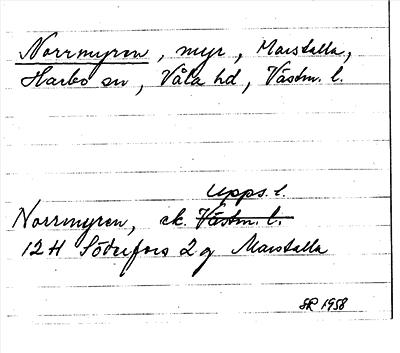 Norrmyren, myr, Marstalla,
Harbo sn, Våla hd, Västm. l.
Upps. l.
Norrmyren, ek. Västm. l.
12H Söderfors 2g Marstalla
SR 1958